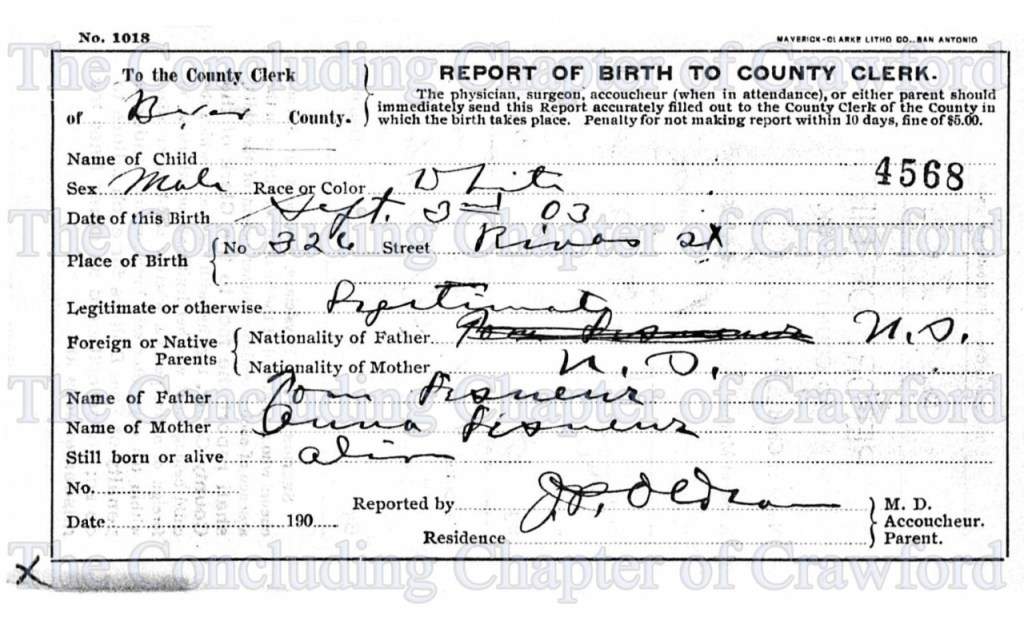 No. 1018
MAVERICK-CLARKE LITHO CO., SAN ANTONIO
To the County Clerk
of Bexar County.
REPORT OF BIRTH TO COUNTY CLERK.
The physician, surgeon, accoucheur (when in attendance), or either parent should
immediately send this Report accurately filled out to the County Clerk of the County in
which the birth takes place. Penalty for not making report within 10 days, fine of $5.00.
Name of Child
4568
Sex Male Race or Color White
Date of this Birth Sept. 3rd 03
Place of Birth { No 326 Street Rivas st
Legitimate or otherwise Legitimate
Foreign or Native Parents { Nationality of Father U.S.
Nationality of Mother U.S.
Name of Father Tom
Name of Mother Anna
Still born or alive alive
No.
Reported by J.P. Oldham
M. D.
Accoucheur.
Parent.
Date 190
Residence
X
The Concluding Chapter of Crawford
The Concluding Chapter of Crawford
The Concluding Chapter of Crawford
The Concluding Chapter of Crawford